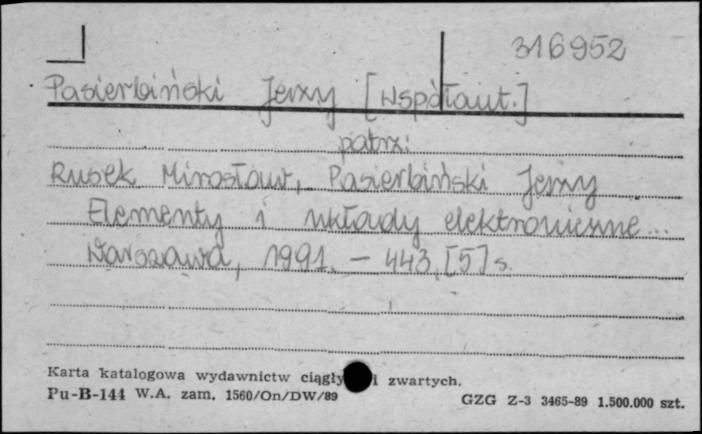 316952
Pasierbiński Jerzy [współaut.]
patrz:
Rusek Mirosław, Pasierbiński Jerzy
Elementy i układy elektroniczne...
Warszawa, 1991. – 443, [5] s.
Karta katalogowa wydawnictw ciągły i zwartych.
Pu-B-144 W.A. zam. 1560/On/DW/89 GZG Z-3 3465-89 1.500.000 szt.